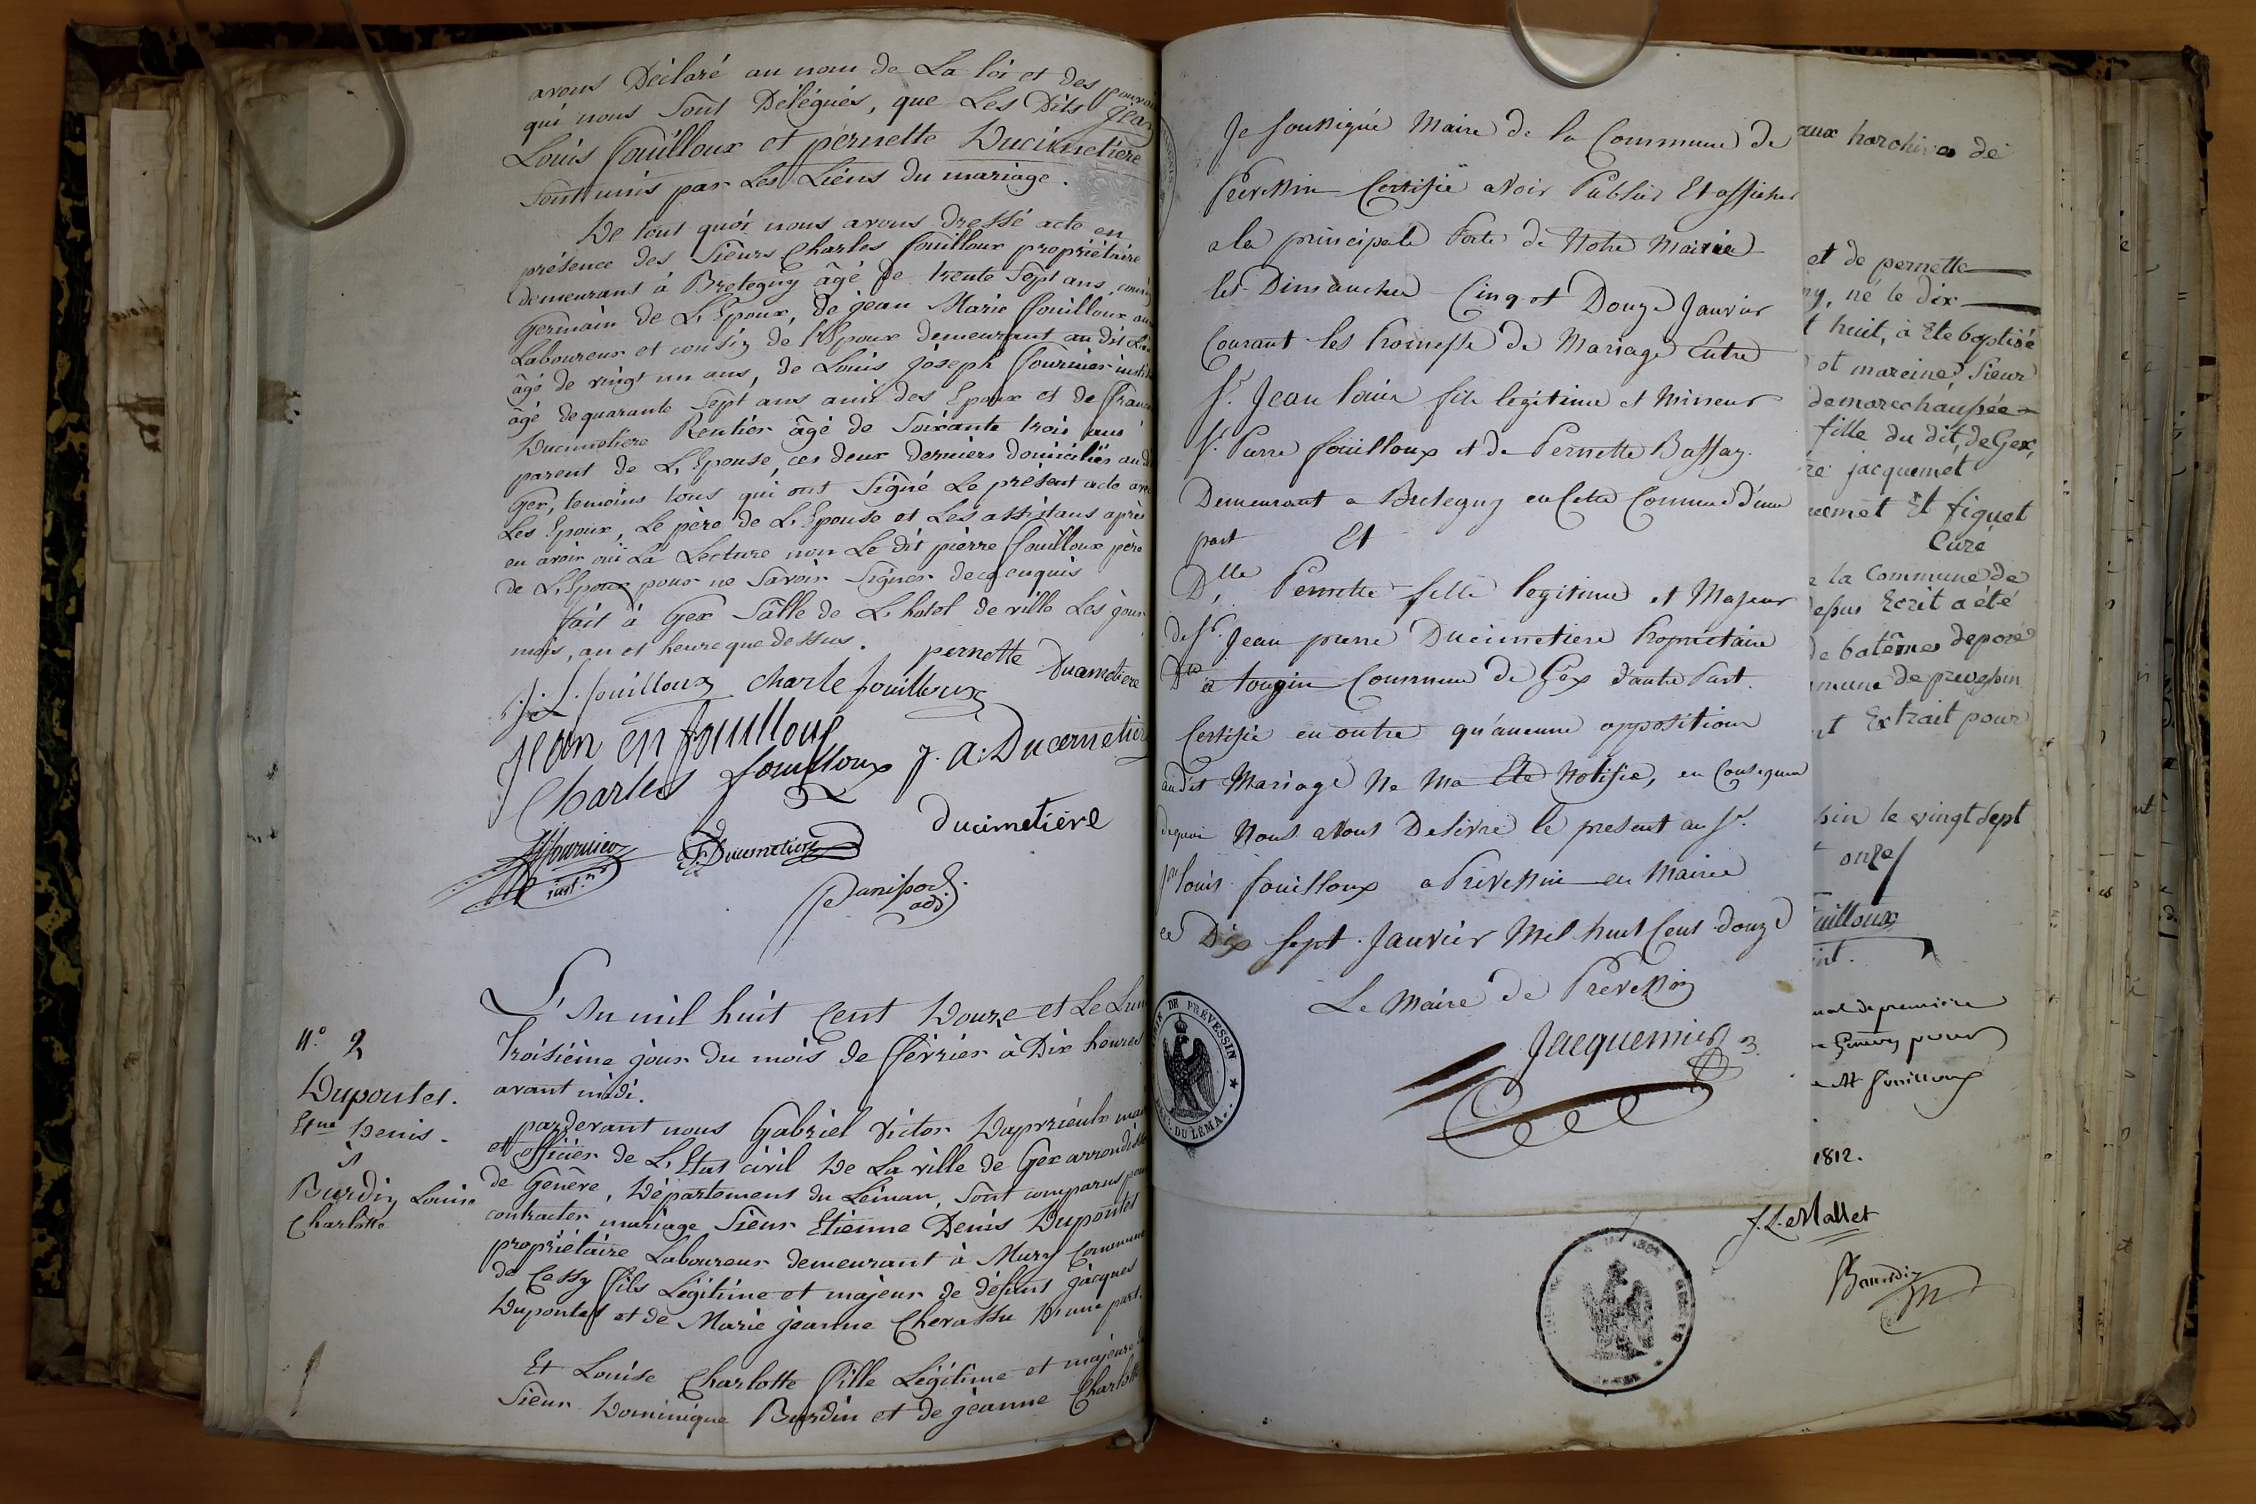 avons Déclaré au nom de La loi et des
qui nous sont Délégués, que Les Dits Jean
Louis fouilloux et pernette Ducimetiere
sont unis par Les Liens du mariage.
De tout quoi nous avons dressé acte en
présence des Sieurs Charles fouilloux propriétaire
demeurant à Bretegny âgé de trente sept ans,
Germain de L'Epoux, de jean Marie fouilloux
Laboureur et cousin de l'Epoux demeurant au dit
âgé de vingt un ans, de Louis joseph fournier
âgé de quarante sept ans ami des Epoux et de
Ducimetière Rentier âgé de Soixante trois ans
parent de L'Epouse, ces deux derniers domiciliés
Gex, temoins tous qui ont Signé Le présent acte
Les Epoux, Le père de L'Epouse et Les assistans après
en avoir oui La Lecture non Le dit pierre fouilloux père
de L'Epoux pour ne Savoir Signer de ce enquis
fait à Gex Salle de L'hotel de ville Les jour
mois, an et heure que dessus.
pernette Ducimetiere
J. L. fouilloux charle fouilloux
jean fouilloux
Charles fouilloux J. A. Ducimetier
Ducimetière
fournier
F. Ducimetiere
Panissod
adj.
N.° 2
Dupontet.
Et.ne Denis.
&
Burdin Louise
Charlotte
L'An mil huit Cent Douze et Le
Troisième jour du mois de février à Dix heures
avant midi.
pardevant nous Gabriel Victor
et officier de L'Etat civil De La ville de Gex
de Genève, Département du Léman, Sont comparus pour
contracter mariage Sieur Etienne Denis Dupontet
propriétaire Laboureur demeurant à Mury Commune
de Cessy fils Légitime et majeur de défunt jacques
Dupontet et de Marie jeanne Chevassu D'une part.
Et Louise Charlotte fille Légitime et majeure
Sieur Dominique Burdin et de jeanne Charlotte
Je soussigné Maire de la Commune de
Prevessin Certifie avoir Publier Et afficher
a la principale Porte de Notre Mairie
les Dimanches Cinq et Douze Janvier
Courant les Promesse de Mariage Entre
Sr. Jean louis fils legitime et Mineur
Sr. Pierre fouilloux et de Pernette Bassay.
Demeurant a Bretegny en Cette Commune d'une
part Et
Dlle Pernette fille legitime et Majeur
de Sr. Jean pierre Ducimetiere Propriétaire
a tougin Commune de Gex d'autre Part.
Certifie en outre qu'aucune opposition
audit Mariage Ne Ma Ete Notifie, en Consequence
dequoi Nous avons Delivré le present au Sr.
Jn louis fouilloux a Prevessin en Mairie
ce Dix Sept Janvier Mil huit Cent douze
Le Maire de Prevessin
Jacquemier
DE PRÉVESSIN
DU LÉMAN
aux harchives de
et de pernette
né le dix
huit, à Ete baptisé
et mareine, Sieur
de marechaussée
fille du dit, de Gex,
jacquemet
Et figuet
Curé
la Commune de
Ecrit a été
de batêmes deposé
de prevesin
Extrait pour
le vingt sept
onze
de premiere
pour
1812.
J. L. Mallet